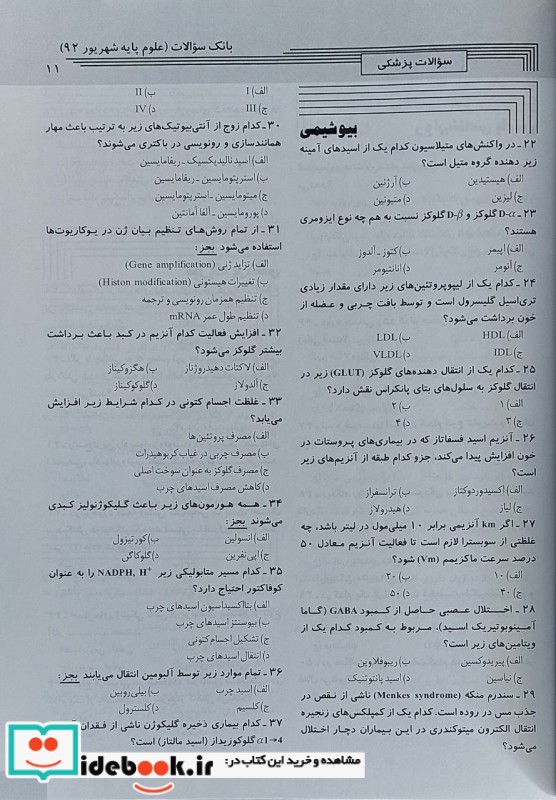 بانک سؤالات (علوم پایه شهریور ۹۲)
سؤالات پزشکی
۱۱
بیوشیمی
۲۲ـ در واکنش‌های متیلاسیون کدام یک از اسیدهای آمینه
زیر دهنده گروه متیل است؟
الف) هیستیدین ب) آرژنین
ج) لیزین د) متیونین
۲۳ـ D-α گلوکز و D-β گلوکز نسبت به هم چه نوع ایزومری
هستند؟
الف) اپیمر ب) کتوز ـ آلدوز
ج) آنومر د) انانتیومر
۲۴ـ کدام یک از لیپوپروتئین‌های زیر دارای مقدار زیادی
تری‌اسیل گلیسرول است و توسط بافت چربی و عضله از
خون برداشت می‌شود؟
الف) HDL ب) LDL
ج) IDL د) VLDL
۲۵ـ کدام یک از انتقال دهنده‌های گلوکز (GLUT) زیر در
انتقال گلوکز به سلول‌های بتای پانکراس نقش دارد؟
الف) ۱ ب) ۲
ج) ۳ د) ۴
۲۶ـ آنزیم اسید فسفاتاز که در بیماری‌های پروستات در
خون افزایش پیدا می‌کند، جزو کدام طبقه از آنزیم‌های زیر
است؟
الف) اکسیدوردوکتاز ب) ترانسفراز
ج) لیاز د) هیدرولاز
۲۷ـ اگر km آنزیمی برابر ۱۰ میلی‌مول در لیتر باشد، چه
غلظتی از سوبسترا لازم است تا فعالیت آنزیم معادل ۵۰
درصد سرعت ماکزیمم (Vm) شود؟
الف) ۱۰ ب) ۲۰
ج) ۴۰ د) ۵۰
۲۸ـ اختلال عصبی حاصل از کمبود GABA (گاما
آمینوبوتیریک اسید)، مربوط به کمبود کدام یک از
ویتامین‌های زیر است؟
الف) پیریدوکسین ب) ریبوفلاوین
ج) نیاسین د) اسید پانتوتنیک
۲۹ـ سندرم منکه (Menkes syndrome) ناشی از نقص در
جذب مس در روده است. کدام یک از کمپلکس‌های زنجیره
انتقال الکترون میتوکندری در این بیماران دچار اختلال
می‌شود؟
الف) I ب) II
ج) III د) IV
۳۰ـ کدام زوج از آنتی‌بیوتیک‌های زیر به ترتیب باعث مهار
همانندسازی و رونویسی در باکتری می‌شوند؟
الف) اسید نالیدیکسیک ـ ریفامایسین
ب) استرپتومایسین ـ ریفامایسین
ج) میتومایسین ـ استرپتومایسین
د) پورومایسین ـ آلفا آمانتین
۳۱ـ از تمام روش‌های تنظیم بیان ژن در یوکاریوت‌ها
استفاده می‌شود بجز:
الف) تزاید ژنی (Gene amplification)
ب) تغییرات هیستونی (Histon modification)
ج) تنظیم همزمان رونویسی و ترجمه
د) تنظیم طول عمر mRNA
۳۲ـ افزایش فعالیت کدام آنزیم در کبد باعث برداشت
بیشتر گلوکز می‌شود؟
الف) لاکتات دهیدروژناز ب) هگزوکیناز
ج) آلدولاز د) گلوکوکیناز
۳۳ـ غلظت اجسام کتونی در کدام شرایط زیر افزایش
می‌یابد؟
الف) مصرف پروتئین‌ها
ب) مصرف چربی در غیاب کربوهیدرات
ج) مصرف گلوکز به عنوان سوخت اصلی
د) کاهش مصرف اسیدهای چرب
۳۴ـ همه هورمون‌های زیر باعث گلیکوژنولیز کبدی
می‌شوند بجز:
الف) انسولین ب) کورتیزول
ج) اپی‌نفرین د) گلوکاگن
۳۵ـ کدام مسیر متابولیکی زیر NADPH, H⁺ را به عنوان
کوفاکتور احتیاج دارد؟
الف) بتااکسیداسیون اسیدهای چرب
ب) بیوسنتز اسیدهای چرب
ج) تشکیل اجسام کتونی
د) انتقال اسیدهای چرب
۳۶ـ تمام موارد زیر توسط آلبومین انتقال می‌یابند بجز:
الف) اسید چرب ب) بیلی‌روبین
ج) کلسیم د) کلسترول
۳۷ـ کدام بیماری ذخیره گلیکوژن ناشی از فقدان
α1→4 گلوکوزیداز (اسید مالتاز) است؟
مشاهده و خرید این کتاب در:
idebook.ir